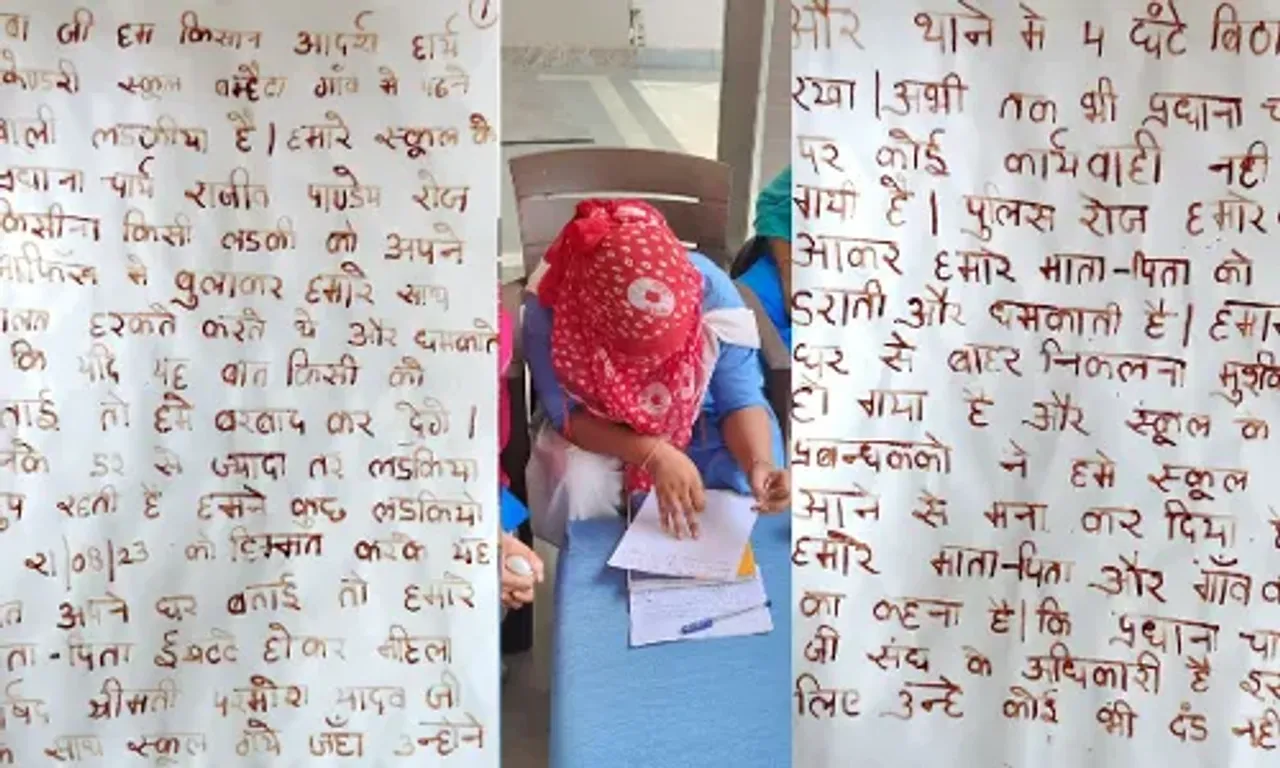 जी हम किसान आदर्श हायर
स्कूल बम्हैटा गाँव मे पढने
लडकीया है | हमारे स्कूल के
चार्य राजीव पाण्डेय रोज
किसीना किसी लडकी को अपने
मे बुलाकर हमारे साथ
हरकते करते थे और धमकाते
कि यदि यह बात किसी को
तो हमे बरबाद कर देगे |
डर से ज्यादा तर लडकिया
रहती है हमने कुछ लडकियो
21/08/23 को हिम्मत करके यह
अपने घर बताई तो हमारे
-पिता ईकटटे होकर महिला
श्रीमती परमोश यादव जी
साथ स्कूल गये जँहा उन्होने
1
और थाने मे 4 घंटे बिठा
रखा | अभी तक भी प्रधाना
पर कोई कार्यवाही नही
गयी है | पुलिस रोज हमारे
आकर हमारे माता-पिता को
डराती और धमकाती है |
घर से बाहर निकलना
हो गया है और स्कूल के
प्रबन्धकको ने हमे स्कूल
आने से मना कर दिया
हमारे माता-पिता और गाँव
का कहना है | कि प्रधाना
जी संघ के अधिकारी है
लिए उन्हे कोई भी दंड